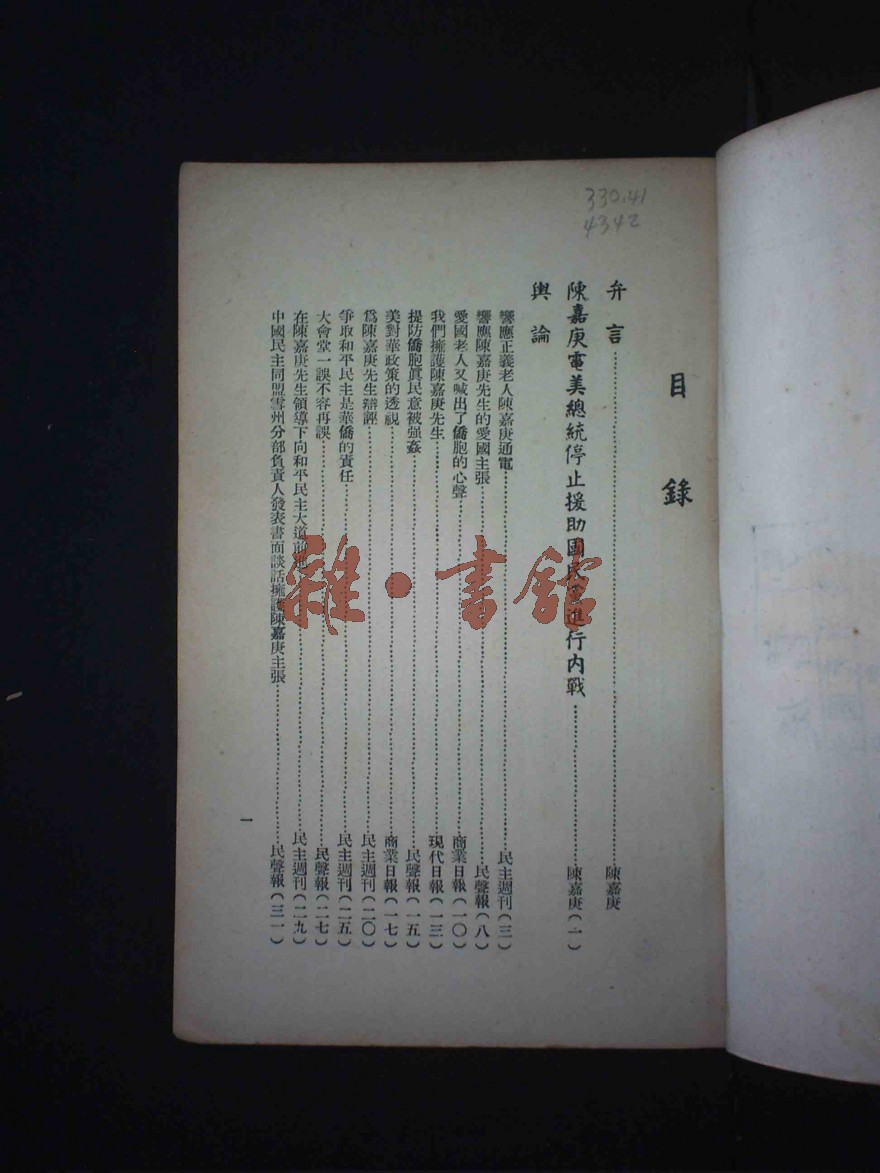 330.41
4342
目錄
弁言……陳嘉庚
陳嘉庚電美總統停止援助國民黨進行內戰……陳嘉庚(一)
輿論
響應正義老人陳嘉庚通電……民主週刊(三)
響應陳嘉庚先生的愛國主張……民聲報(八)
愛國老人又喊出了僑胞的心聲……商業日報(一〇)
我們擁護陳嘉庚先生……現代日報(一三)
提防僑胞眞民意被强姦……民聲報(一五)
美對華政策的透視……商業日報(一七)
爲陳嘉庚先生辯誣……民主週刊(二〇)
爭取和平民主是華僑的責任……民主週刊(二五)
大會堂一誤不容再誤……民聲報(二七)
在陳嘉庚先生領導下向和平民主大道前進……民主週刊(二九)
中國民主同盟雪州分部負責人發表書面談話擁護陳嘉庚主張……民聲報(三一)
一
雜·書館